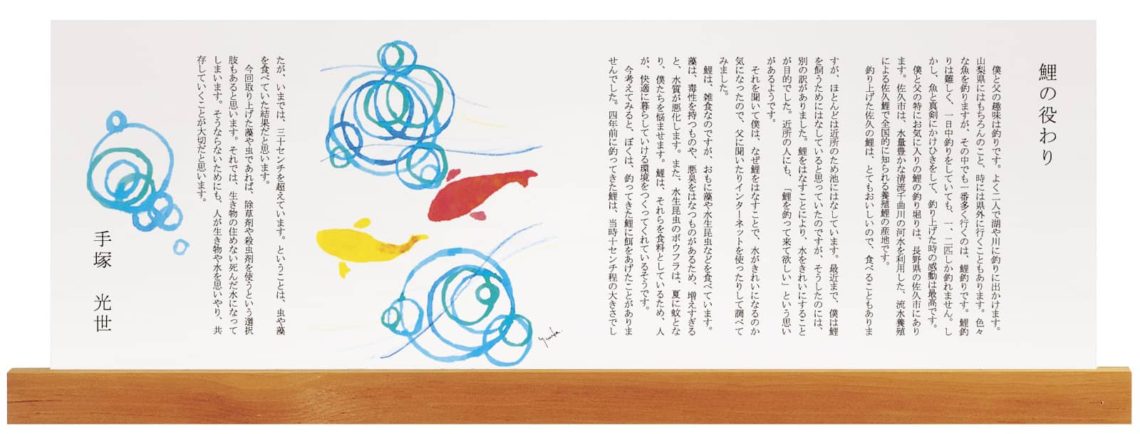 鯉の役わり
僕と父の趣味は釣りです。よく二人で湖や川に釣りに出かけます。
山梨県にはもちろんのこと、時には県外に行くこともあります。色々
な魚を釣りますが、その中でも一番多く行くのは、鯉釣りです。鯉釣
りは難しく、一日中釣りをしていても、一、二匹しか釣れません。し
かし、魚と真剣にかけひきをして、釣り上げた時の感動は最高です。
僕と父の特にお気に入りの鯉の釣り堀りは、長野県の佐久市にあり
ます。佐久市は、水量豊かな清流千曲川の河水を利用した、流水養殖
による佐久鯉で全国的に知られる養殖鯉の産地です。
釣り上げた佐久の鯉は、とてもおいしいので、食べることもありま
すが、ほとんどは近所のため池にはなしています。最近まで、僕は鯉
を飼うためにはなしていると思っていたのですが、そうしたのには、
別の訳がありました。鯉をはなすことにより、水をきれいにすること
が目的でした。近所の人にも、「鯉を釣って来て欲しい」という思い
があるようです。
それを聞いて僕は、なぜ鯉をはなすことで、水がきれいになるのか
気になったので、父に聞いたりインターネットを使ったりして調べて
みました。
鯉は、雑食なのですが、おもに藻や水生昆虫などを食べています。
藻は、毒性を持つものや、悪臭をはなつものがあるため、増えすぎる
と、水質が悪化します。また、水生昆虫のボウフラは、夏に蚊とな
り、僕たちを悩ませます。鯉は、それらを食料としているため、人
が、快適に暮らしていける環境をつくってくれているそうです。
今考えてみると、ぼくは、釣ってきた鯉に餌をあげたことがありま
せんでした。四年前に釣ってきた鯉は、当時十センチ程の大きさでし
たが、いまでは、三十センチを超えています。ということは、虫や藻
を食べていた結果だと思います。
今回取り上げた藻や虫であれば、除草剤や殺虫剤を使うという選択
肢もあると思います。それでは、生き物の住めない死んだ水になって
しまいます。そうならないためにも、人が生き物や水を思いやり、共
存していくことが大切だと思います。
手塚 光世